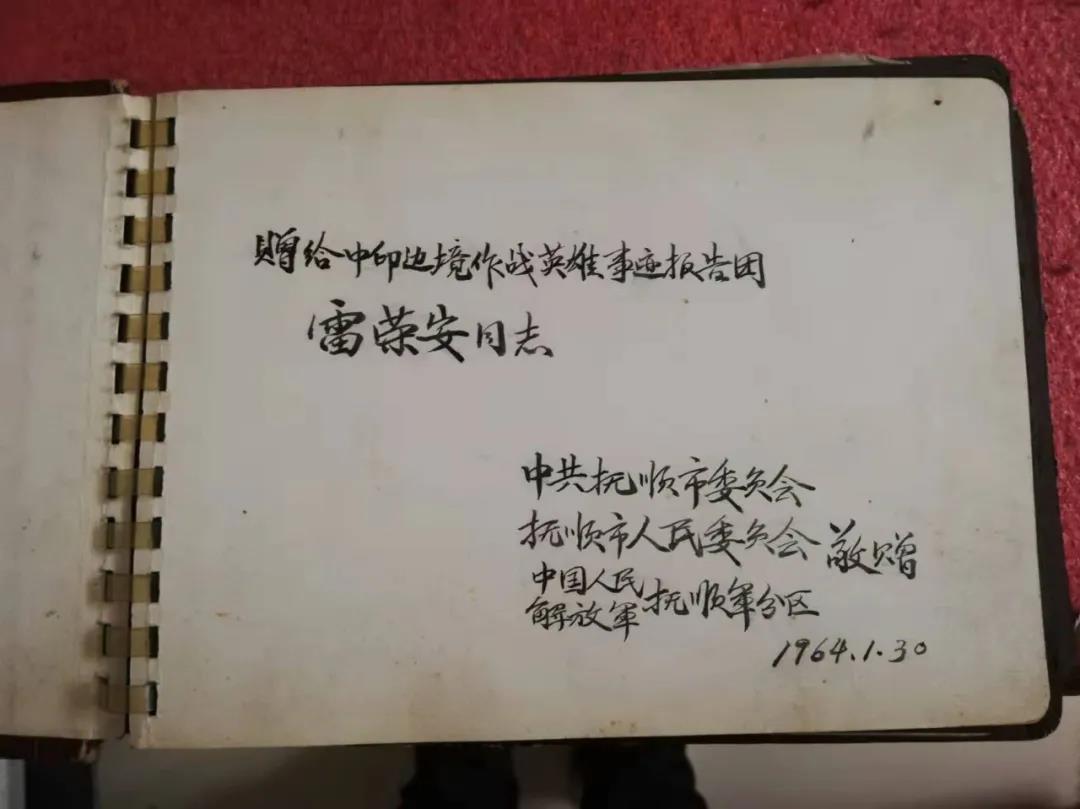 赠给中印边境作战英雄事迹报告团
雷荣安同志
中共抚顺市委员会
抚顺市人民委员会 敬赠
中国人民
解放軍 抚顺軍分区
1964.1.30